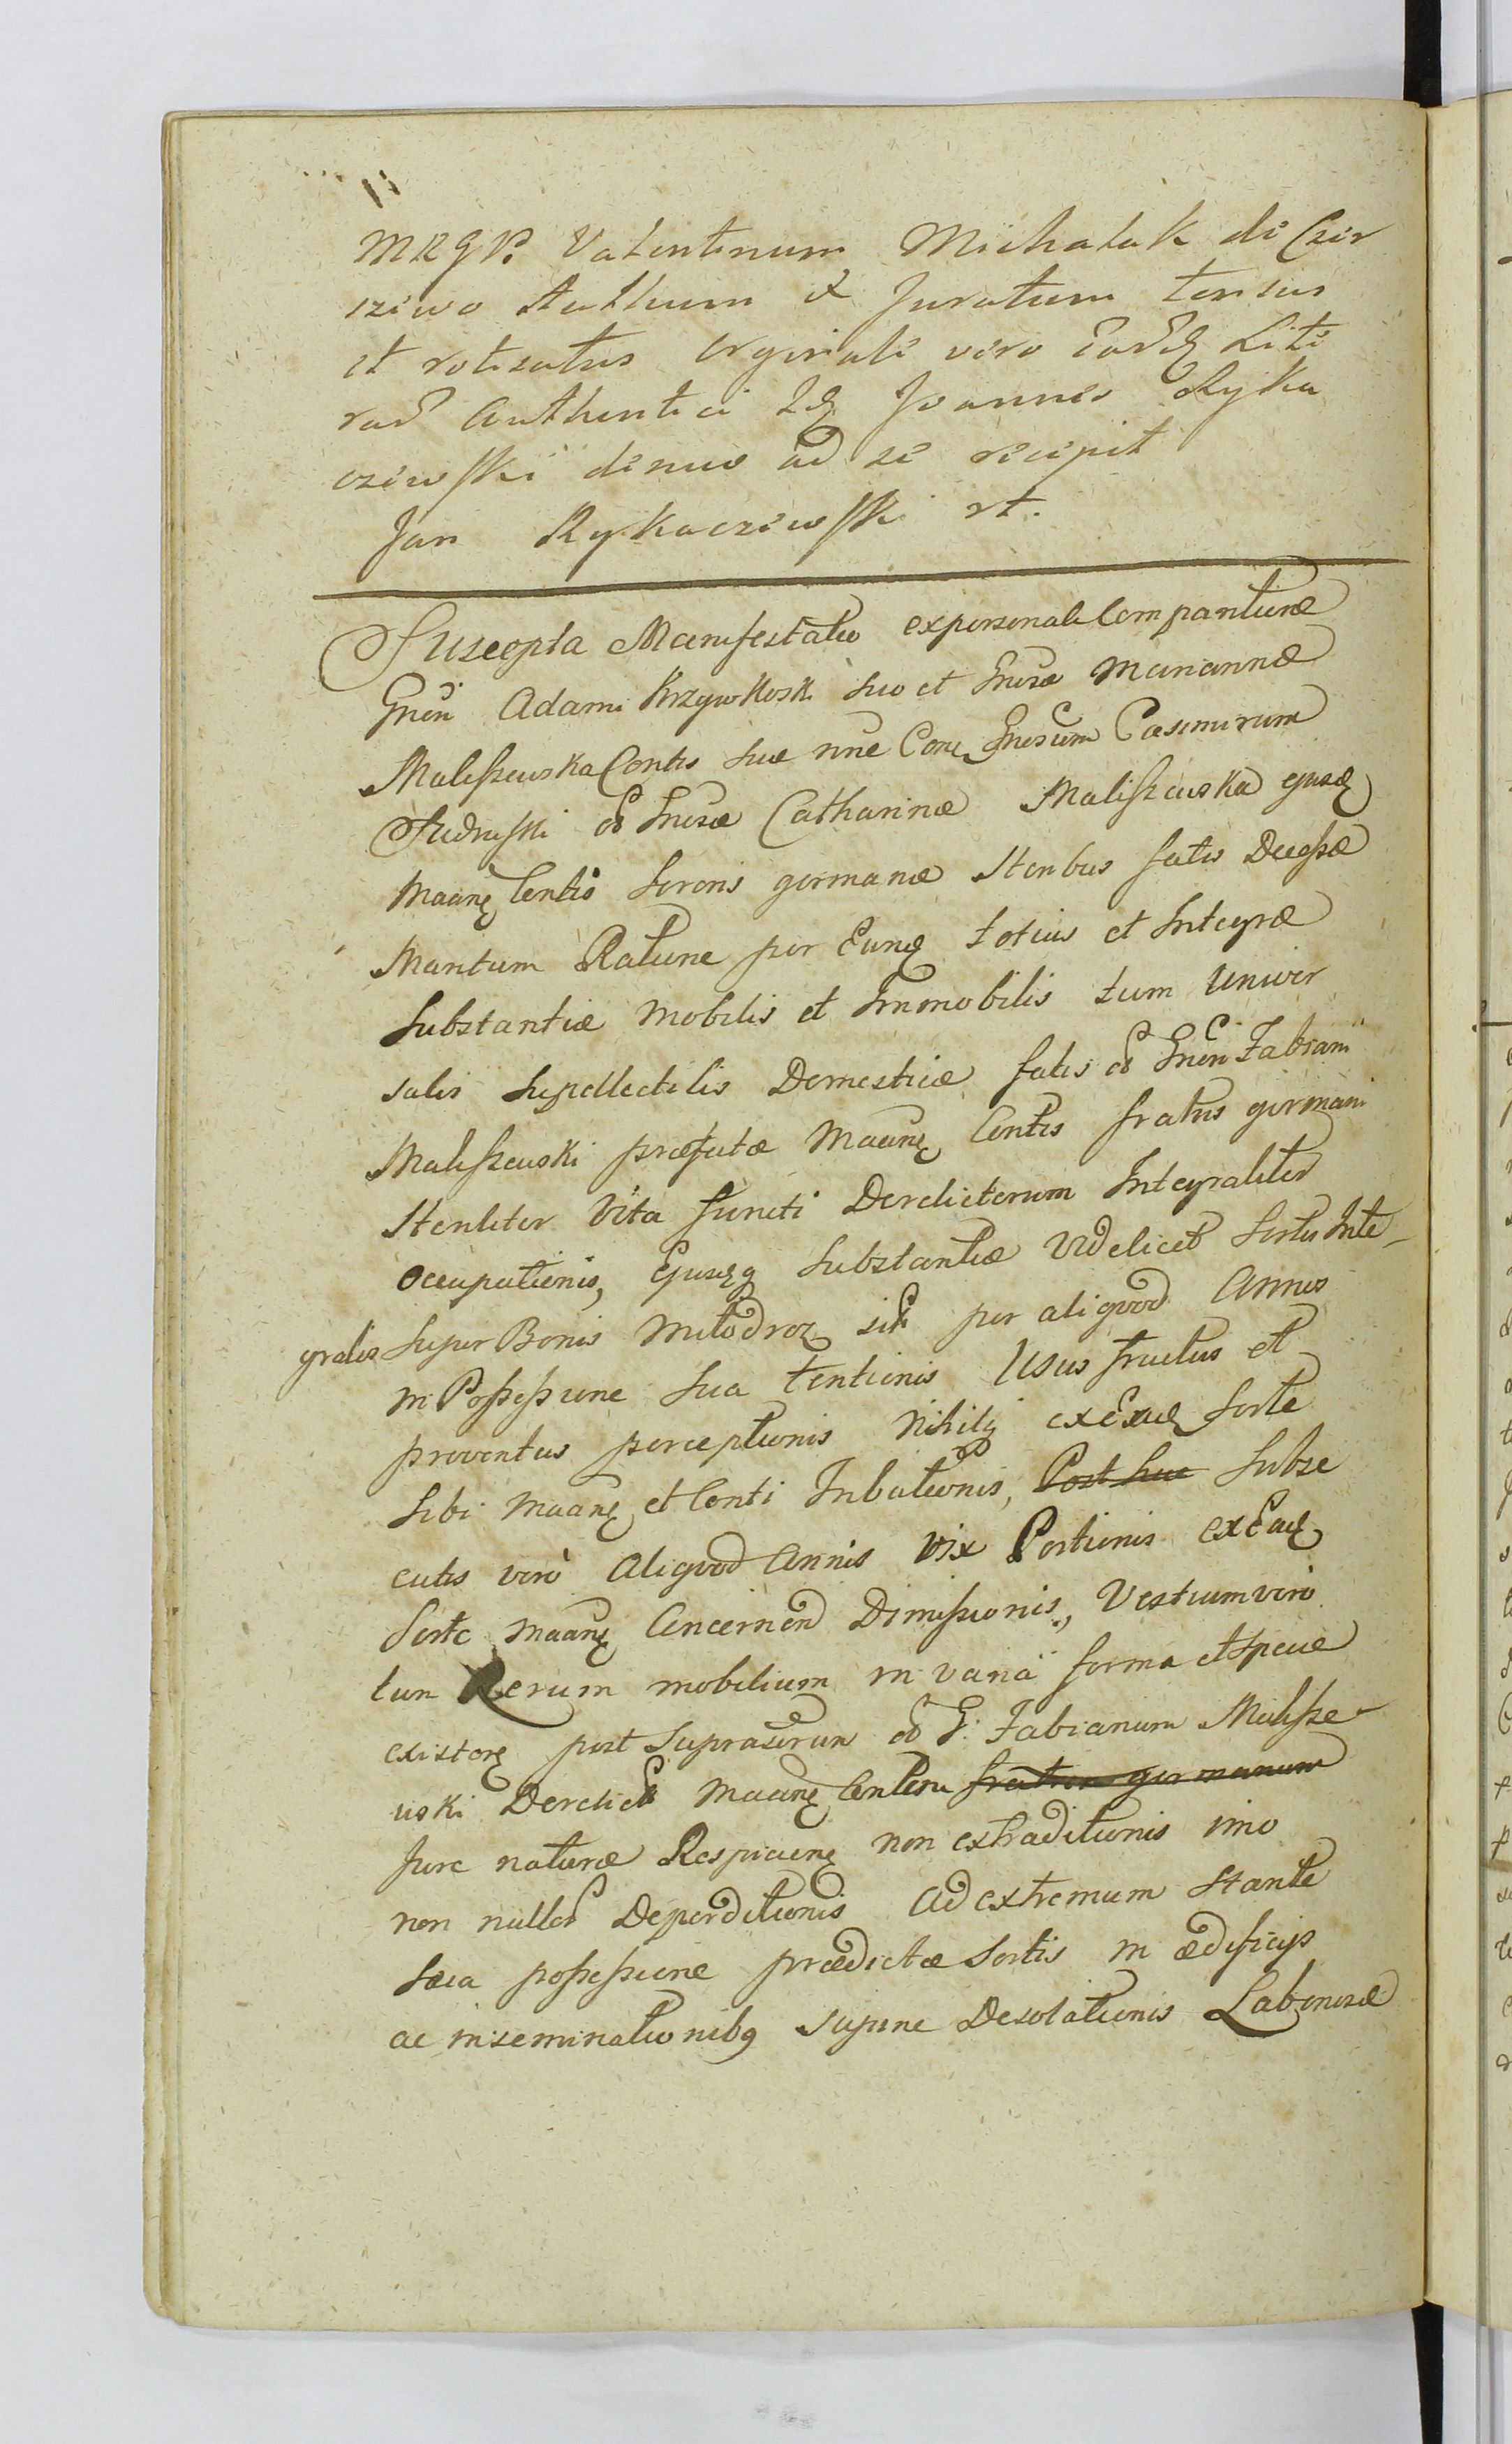 MRGP. Valentinum Michalak de Czer
sziwo Authum et Juratum tensus
et rotisatus orginali vero eardeq Lite
rar authentici Idq Joannes Ryka
cziewsski denuo ad se recepit
Jan Rykaczewsski rt.
Suscepta Manifestatio ex personali Comparitione
Gnen Adami Krzywkosk suo et Gnosæ Mariannæ
Maliszewska Contis suæ nne Cone Gnosum Casimirum
Sudruski ol Gnosæ Catharinæ Maliszewska ejusdeq
Maanq Contis Sororis germanæ Steribus fatis Decessæ
Maritum Ratione per Eunq totius et Integræ
Substantiæ Mobilis et Immobilis tum Univer
salis supellectilis Domesticæ fatis ol Gnen Fabiani
Maliszewski præfatæ Maanq Contis fratris germani
Steriliter Vita functi Derelictorum Integraliter
occupationis, Ejusqq Substantiæ Videlicet Sortis Inte-
gralis super Bonis Milodroz sit per aliquod Annos
in Possessione sua tentionis Usus fructus et
proventus perceptionis Nihilq ex Eadq Sorte
Sibi Maanq et Conti Inbationis, Post hac Subse
cutis vero Aliquod Annis vix Portionis ex Eadq
Sorte Maanq Concernen Dimissionis, Vestium vero
tum Rerum mobilium in varia forma et Specie
existenq post Suprascrun ol G. Fabianum Malisze-
uski Derelict Maanq Contem fratrem germanum
Jure naturæ Respicienq non extraditionis imo
non nullor Deperditionis ad extremum Stante
sua possessione prædictæ Sortis in ædificijs
ac inseminationibq supine Desolationis Laboriosæ